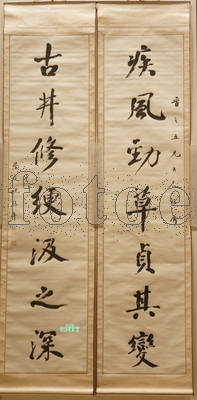 疾風勁草貞其變
古井修綆汲之深
fotoe